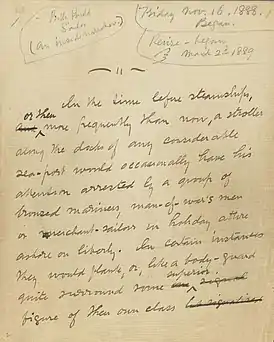 Billy Budd
Sailor
(An inside narrative.)
Friday Nov. 16. 1888.
Began.
Revise - began
March 2d 1889
In the time before steamships,
or then
more frequently than now, a stroller
along the docks of any considerable
sea-port would occasionally have his
attention arrested by a group of
bronzed mariners, man-of-war's men
or merchant-sailors in holiday attire
ashore on liberty. In certain instances
they would flank, or, like a body-guard
quite surround some superior
figure of their own class